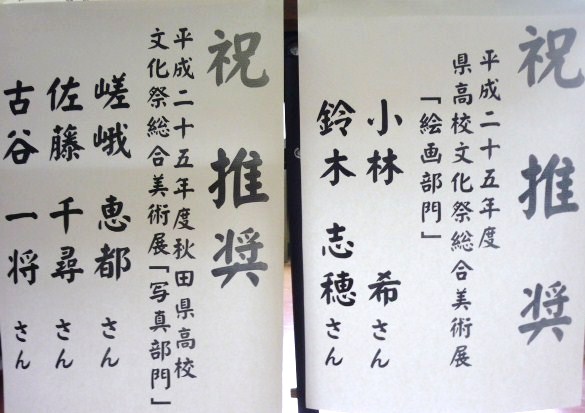 祝 推奨
平成二十五年度
県高校文化祭総合美術展
「絵画部門」
小林 希さん
鈴木 志穂さん
祝 推奨
平成二十五年度秋田県高校
文化祭総合美術展「写真部門」
嵯峨 恵都さん
佐藤 千尋さん
古谷 一将さん